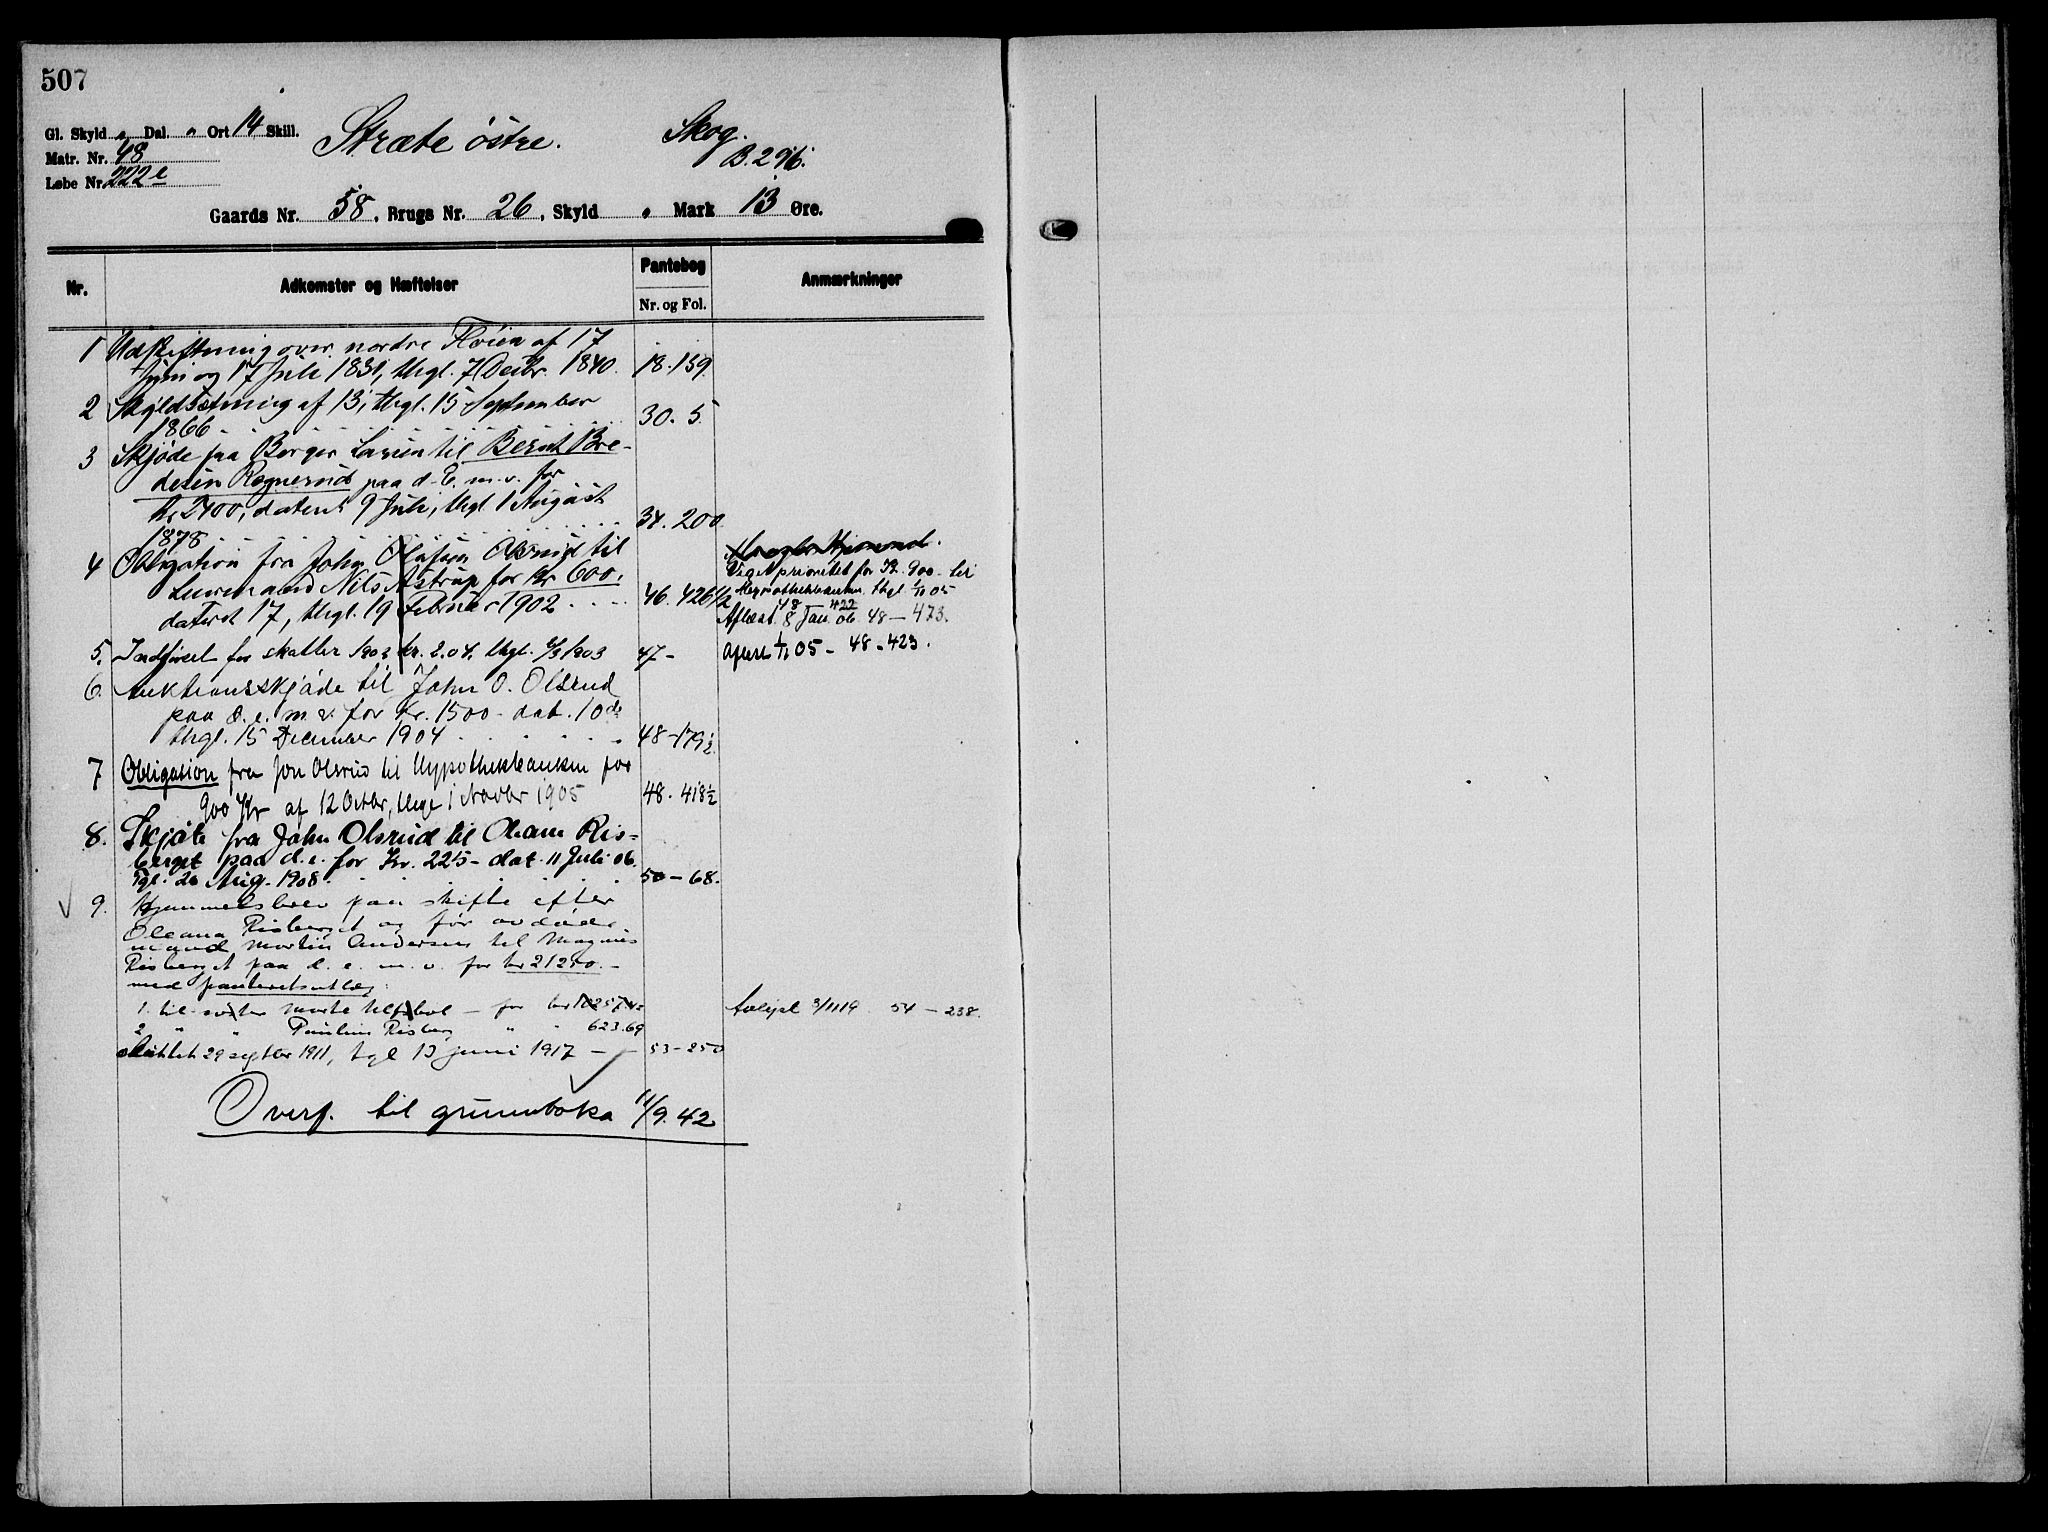 507
Gl. Skyld " Dal. " Ort 14 Skill.
Matr. Nr. 48
Løbe Nr. 222e
Stræte østre.
Skog.
B. 296.
Gaards Nr. 58, Brugs Nr. 26, Skyld " Mark 13 Øre.
Nr. Adkomster og Hæftelser Pantebog Anmærkninger
Nr. og Fol.
1 Udskiftning over nordre Fløien af 17
Juni og 17 Juli 1831, thgl. 7 Decbr. 1840. 18. 159.
2 Skyldsetning af 13, thgl. 15 September
1866 30. 5.
3 Skjøde fra Berger Larsen til Bernt Bre-
desen Rognerud paa d. E. m. v. for
Kr 2400, datert 9 Juli, thgl 1 August
1878 34. 200
4 Obligation fra John Olafsen Olsrud til
Nils Astrup for Kr 600,
datert 17, thgl. 19 Februar 1902 46. 426 1/2
Veget prioritet for Kr. 900 til
Hypothekbanken thgl 1/11 05
48 422
Aflæst 8 Jan. 06. 48 – 473.
5. Indførsel for skatter 1902 kr. 2.04, thgl. 6/3 1903 47 – Aflæst 1/11 05 – 48 – 423.
6. Auktionsskjøde til John O. Olsrud
paa d. e. m. v. for Kr. 1500 – dat. 10de
thgl. 15 December 1904 48 – 179 1/2
7 Obligasion fra Jon Olsrud til Hypothekbanken for
900 Kr af 12 Octbr, thgl 1 Novbr 1905 48. 418 1/2
8. Skjøte fra John Olsrud til Oleane Ris-
berget paa d. e. for Kr. 225 – dat. 11 Juli 06.
Tgl. 26 Aug. 1908. 50 – 68.
9. Hjemmelsbrev paa skifte efter
Oleana Risberget og før avdøde
mand Martin Andersen til Magnus
Risberget paa d. e. m. v. for kr 21250. –
med panteretsutlæg:
1. til søster Marte – for kr 10257.42 Avlyst 3/11 19 54 – 238.
2. " " Pauline Risberg " " 623.69
sluttet 29 septbr 1911, tgl 13 juni 1917 – 53 – 250
Overf. til grunnboka 11/9. 42